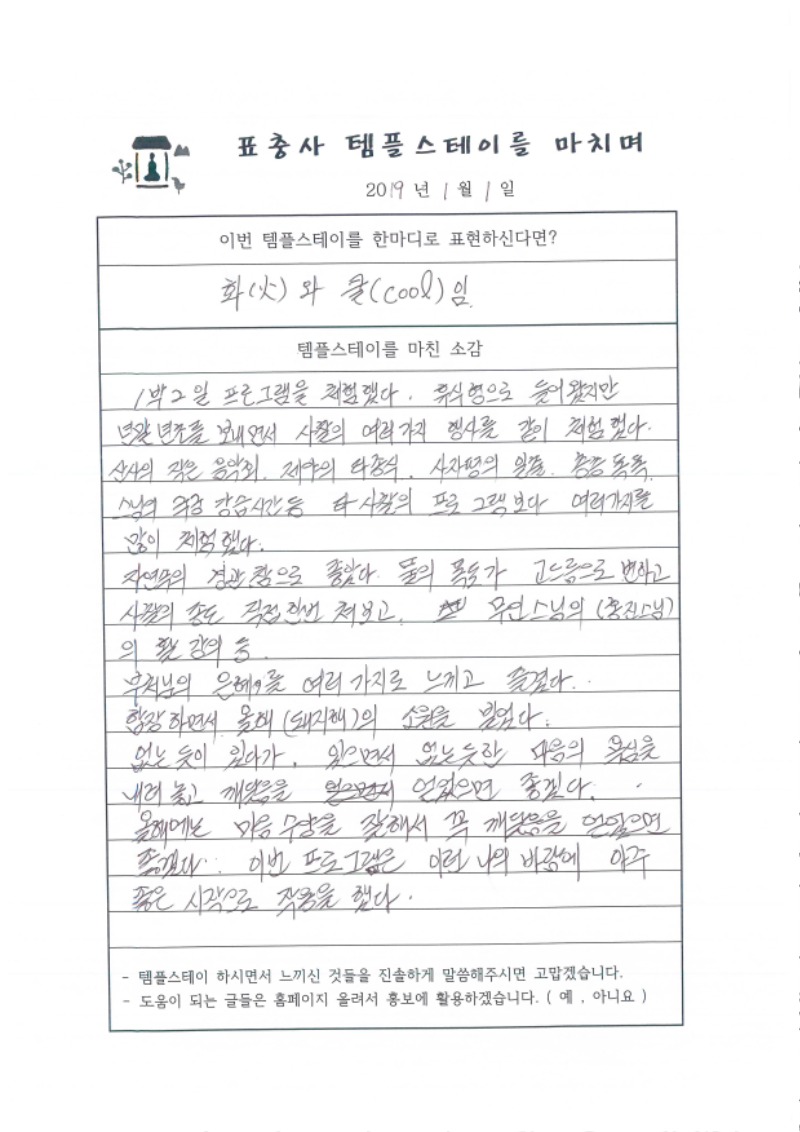 표충사 템플스테이를 마치며
2019 년 1 월 1 일
이번 템플스테이를 한마디로 표현하신다면?
화(火)와 쿨(cool)임.
템플스테이를 마친 소감
1박 2일 프로그램을 체험했다. 휴식형으로 들어왔지만
년말 년초를 보내면서 사찰의 여러가지 행사를 같이 체험했다.
산사의 작은 음악회, 제야의 타종식, 사자평의 일출, 층층폭포,
스님의 강습시간 등 타 사찰의 프로그램보다 여러가지를
많이 체험했다.
자연속의 경관 참으로 좋았다. 물의 폭포가 고드름으로 변하고
사찰의 종도 직접 한번 쳐보고, 무연스님의 (홍진스님)
의 강의 등.
부처님의 은혜를 여러가지로 느끼고 즐겼다.
합장하면서 올해 (돼지해)의 소원을 빌었다.
없는 듯이 있다가, 있으면서 없는 듯한 마음의 욕심을
내려 놓고 깨달음을 얻었으면 좋겠다.
올해에는 마음 수양을 잘해서 꼭 깨달음을 얻었으면
좋겠다. 이번 프로그램은 이런 나의 바람에 아주
좋은 시작으로 작용을 했다.
- 템플스테이 하시면서 느끼신 것들을 진솔하게 말씀해주시면 고맙겠습니다.
- 도움이 되는 글들은 홈페이지 올려서 홍보에 활용하겠습니다. ( 예 , 아니요 )